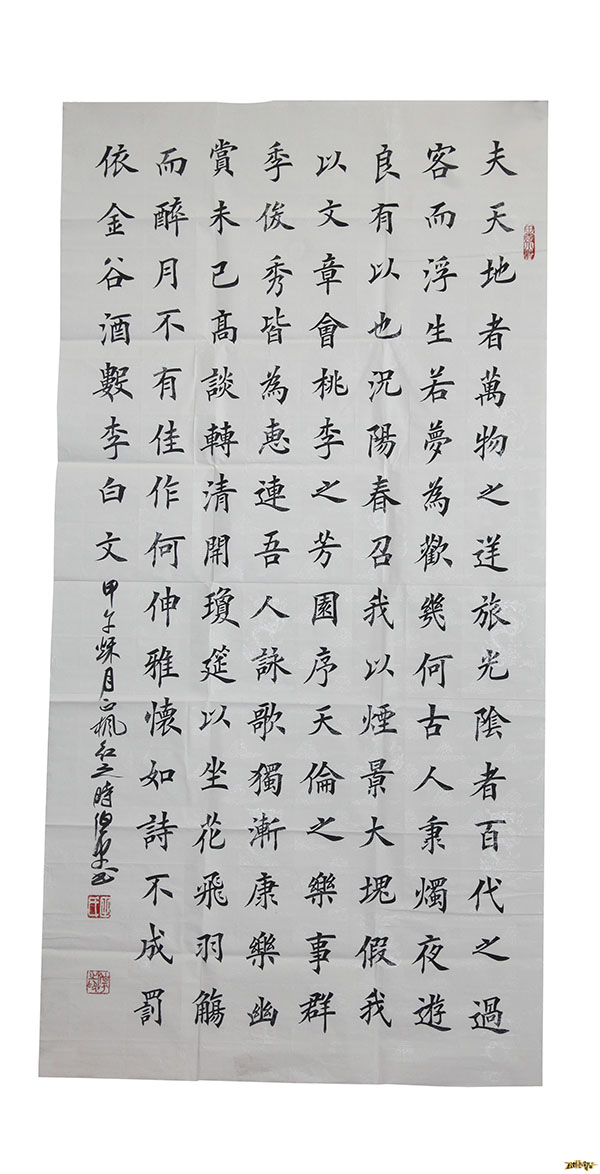 夫天地者萬物之逆旅光陰者百代之過
客而浮生若夢為歡幾何古人秉燭夜遊
良有以也況陽春召我以煙景大塊假我
以文章會桃李之芳園序天倫之樂事群
季俊秀皆為惠連吾人詠歌獨漸康樂幽
賞未已高談轉清開瓊筵以坐花飛羽觴
而醉月不有佳作何伸雅懷如詩不成罰
依金谷酒數李白文
甲午秌月正楓紅之時